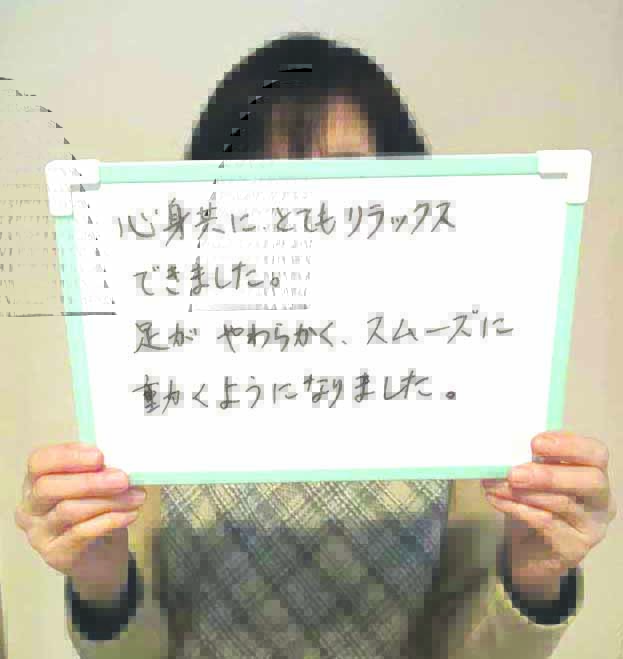 心身共に とてもリラックス
できました。
足が やわらかく、スムーズに
動くようになりました。